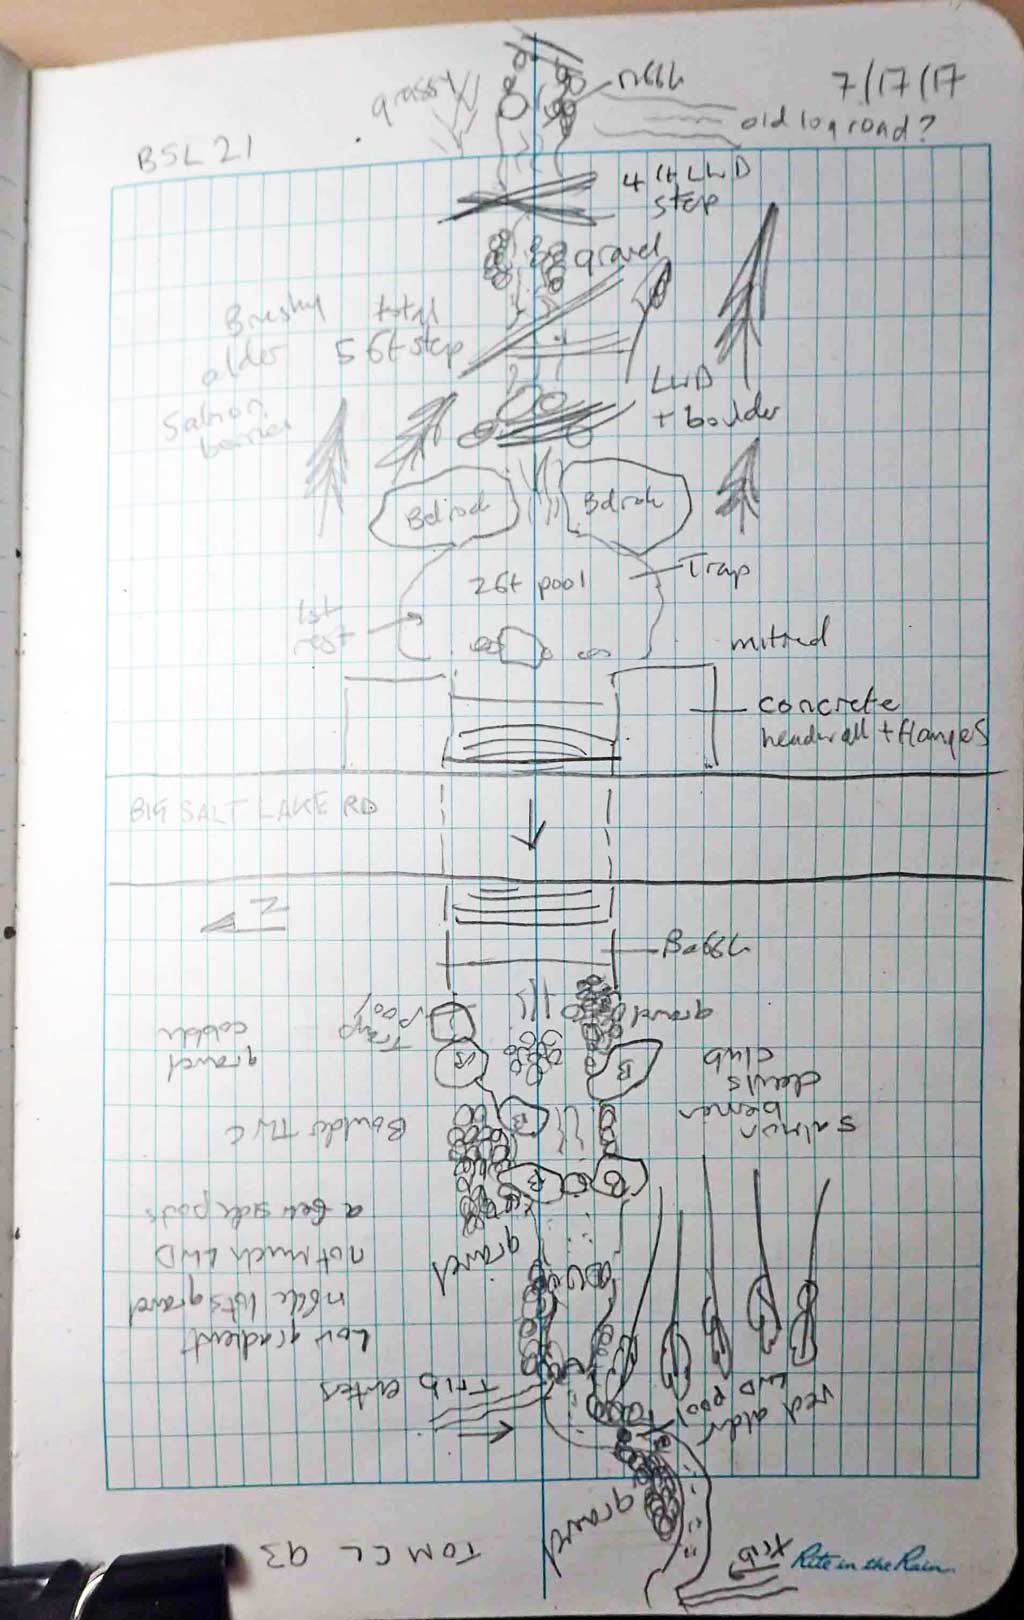 7/17/17
grassy
riffle
old log road?
BSL 21
4 ft LWD
step
gravel
Brushy
alder
total
5 ft step
LWD
+ boulder
Salmon
berries
Bdrock
Bdrock
2 ft pool
Trap
1st
rest
mitred
concrete
headwall + flanges
BIG SALT LAKE RD
N
gravel
Trap
Pool
gravel
cobble
B
B
devils
club
salmon
berries
Boulder
B
B
B
a few side pools
not much LWD
riffle lots gravel
Low gradient
gravel
Trib enters
red alder
LWD pool
gravel
trib
TOM CL 93
Rite in the Rain